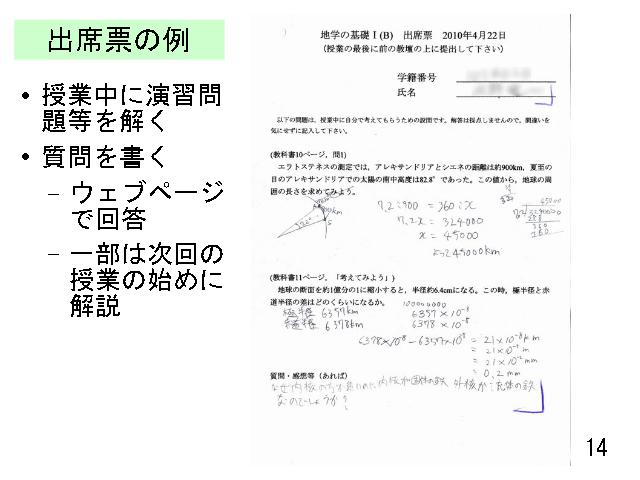 出席票の例
• 授業中に演習問
題等を解く
• 質問を書く
– ウェブページ
で回答
– 一部は次回の
授業の始めに
解説
地学の基礎 I (B) 出席票 2010年4月22日
(授業の最後に前の教壇の上に提出して下さい)
学籍番号
氏名
以下の問題は、授業中に自分で考えてもらうための設問です。解答は採点しませんので、間違いを
気にせずに記入して下さい。
(教科書10ページ、問1)
エラトステネスの測定では、アレキサンドリアとシエネの距離は約900km、夏至の
日のアレキサンドリアでの太陽の南中高度は82.8°であった。この値から、地球の周
囲の長さを求めてみよう。
7.2:900 = 360:x
7.2x = 324000
x = 45000
よって45000km
(教科書11ページ、「考えてみよう」)
地球の断面を約1億分の1に縮小すると、半径約6.4cmになる。この時、極半径と赤
道半径の差はどのくらいになるか。
100000000
極半径 6357km 6357 × 10⁻⁸
6378km 6378 × 10⁻⁸
6378×10⁻⁸ - 6357×10⁻⁸ = 21 × 10⁻⁸ km
= 21 × 10⁻² mm
= 0.2 mm
質問・感想等(あれば)
内核が固体の鉄 外核が液体の鉄
なのでしょうか?
14